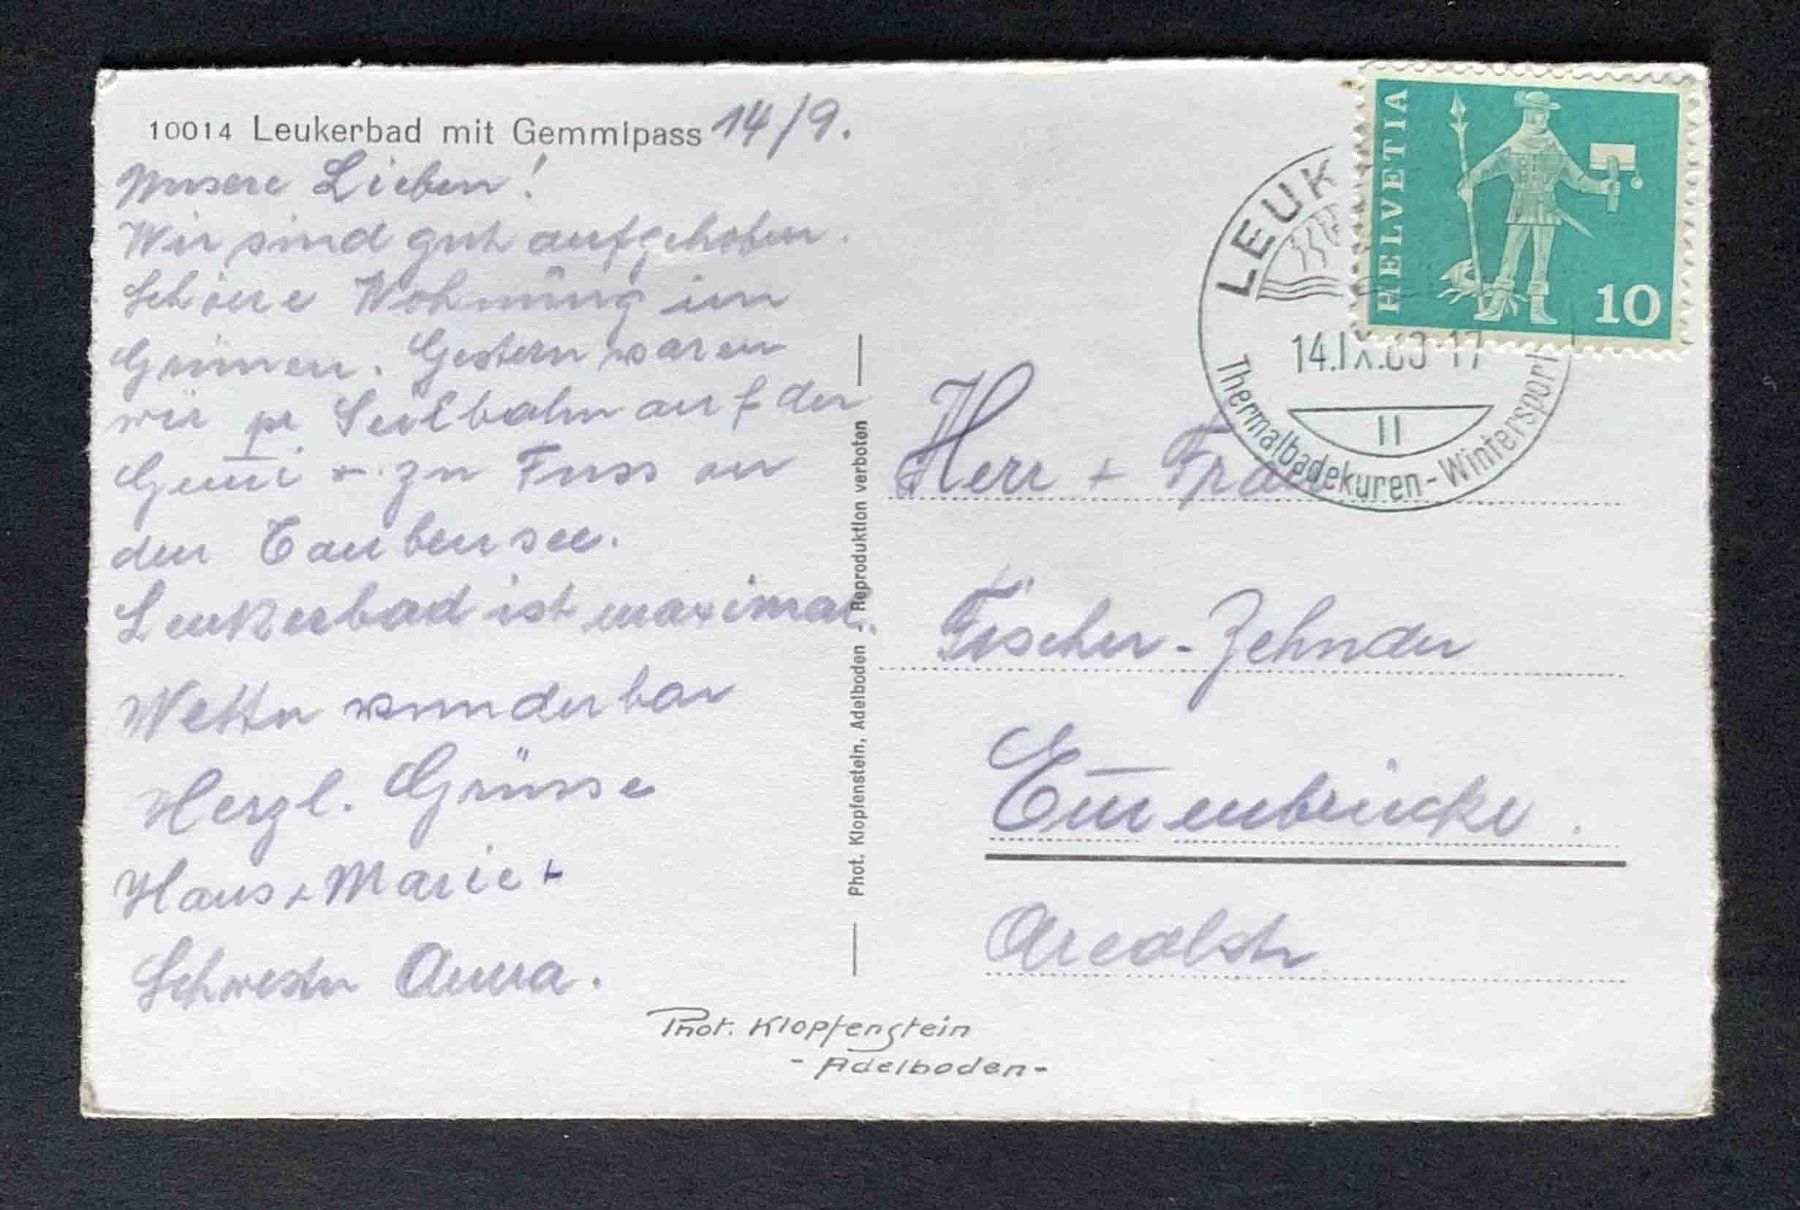 10014 Leukerbad mit Gemmipass 14/9.
Unsere Lieben!
Wir sind gut aufgehoben.
Schöne Wohnung im
Grünen. Gestern waren
wir pr Seilbahn auf der
Gemi + zu Fuss an
den Taubensee.
Leukerbad ist maximal.
Wetter wunderbar
Herzl. Grüsse
Hans + Marie +
Schwester Anna.
Phot. Klopfenstein, Adelboden - Reproduktion verboten
Phot. Klopfenstein
- Adelboden -
HELVETIA
10
LEUK
14.IX. 17
Thermalbadekuren - Wintersport
Herr + Frau
Fischer - Zehnder